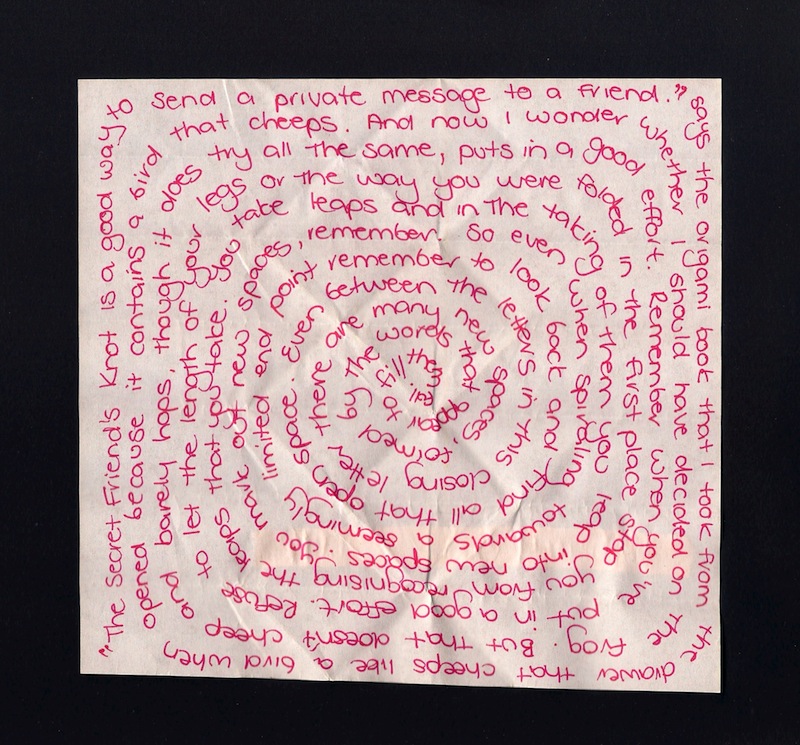 "The Secret Friend's Knot is a good way to
send a private message to a friend."
says the origami book that I took from the
drawer that cheeps like a bird when
opened because it contains a bird
that cheeps. And now I wonder
whether I should have decided on the
frog. But that doesn't cheep
and barely hops, though it does
try all the same, puts in a good
effort. Remember when you've
put in a good effort. Refuse
to let the length of your
legs or the way you were
folded in the first place stop
you from recognising the
leaps that you take. You
take leaps and in the taking
of them you leap
into new spaces. You
mark out new spaces,
remember. So even
when spiralling
towards a seemingly
limited end point
remember to look
back and find
all that open space. Even
between the letters in this
closing letter there are
many new spaces,
formed by the
words that appear
to fill them.